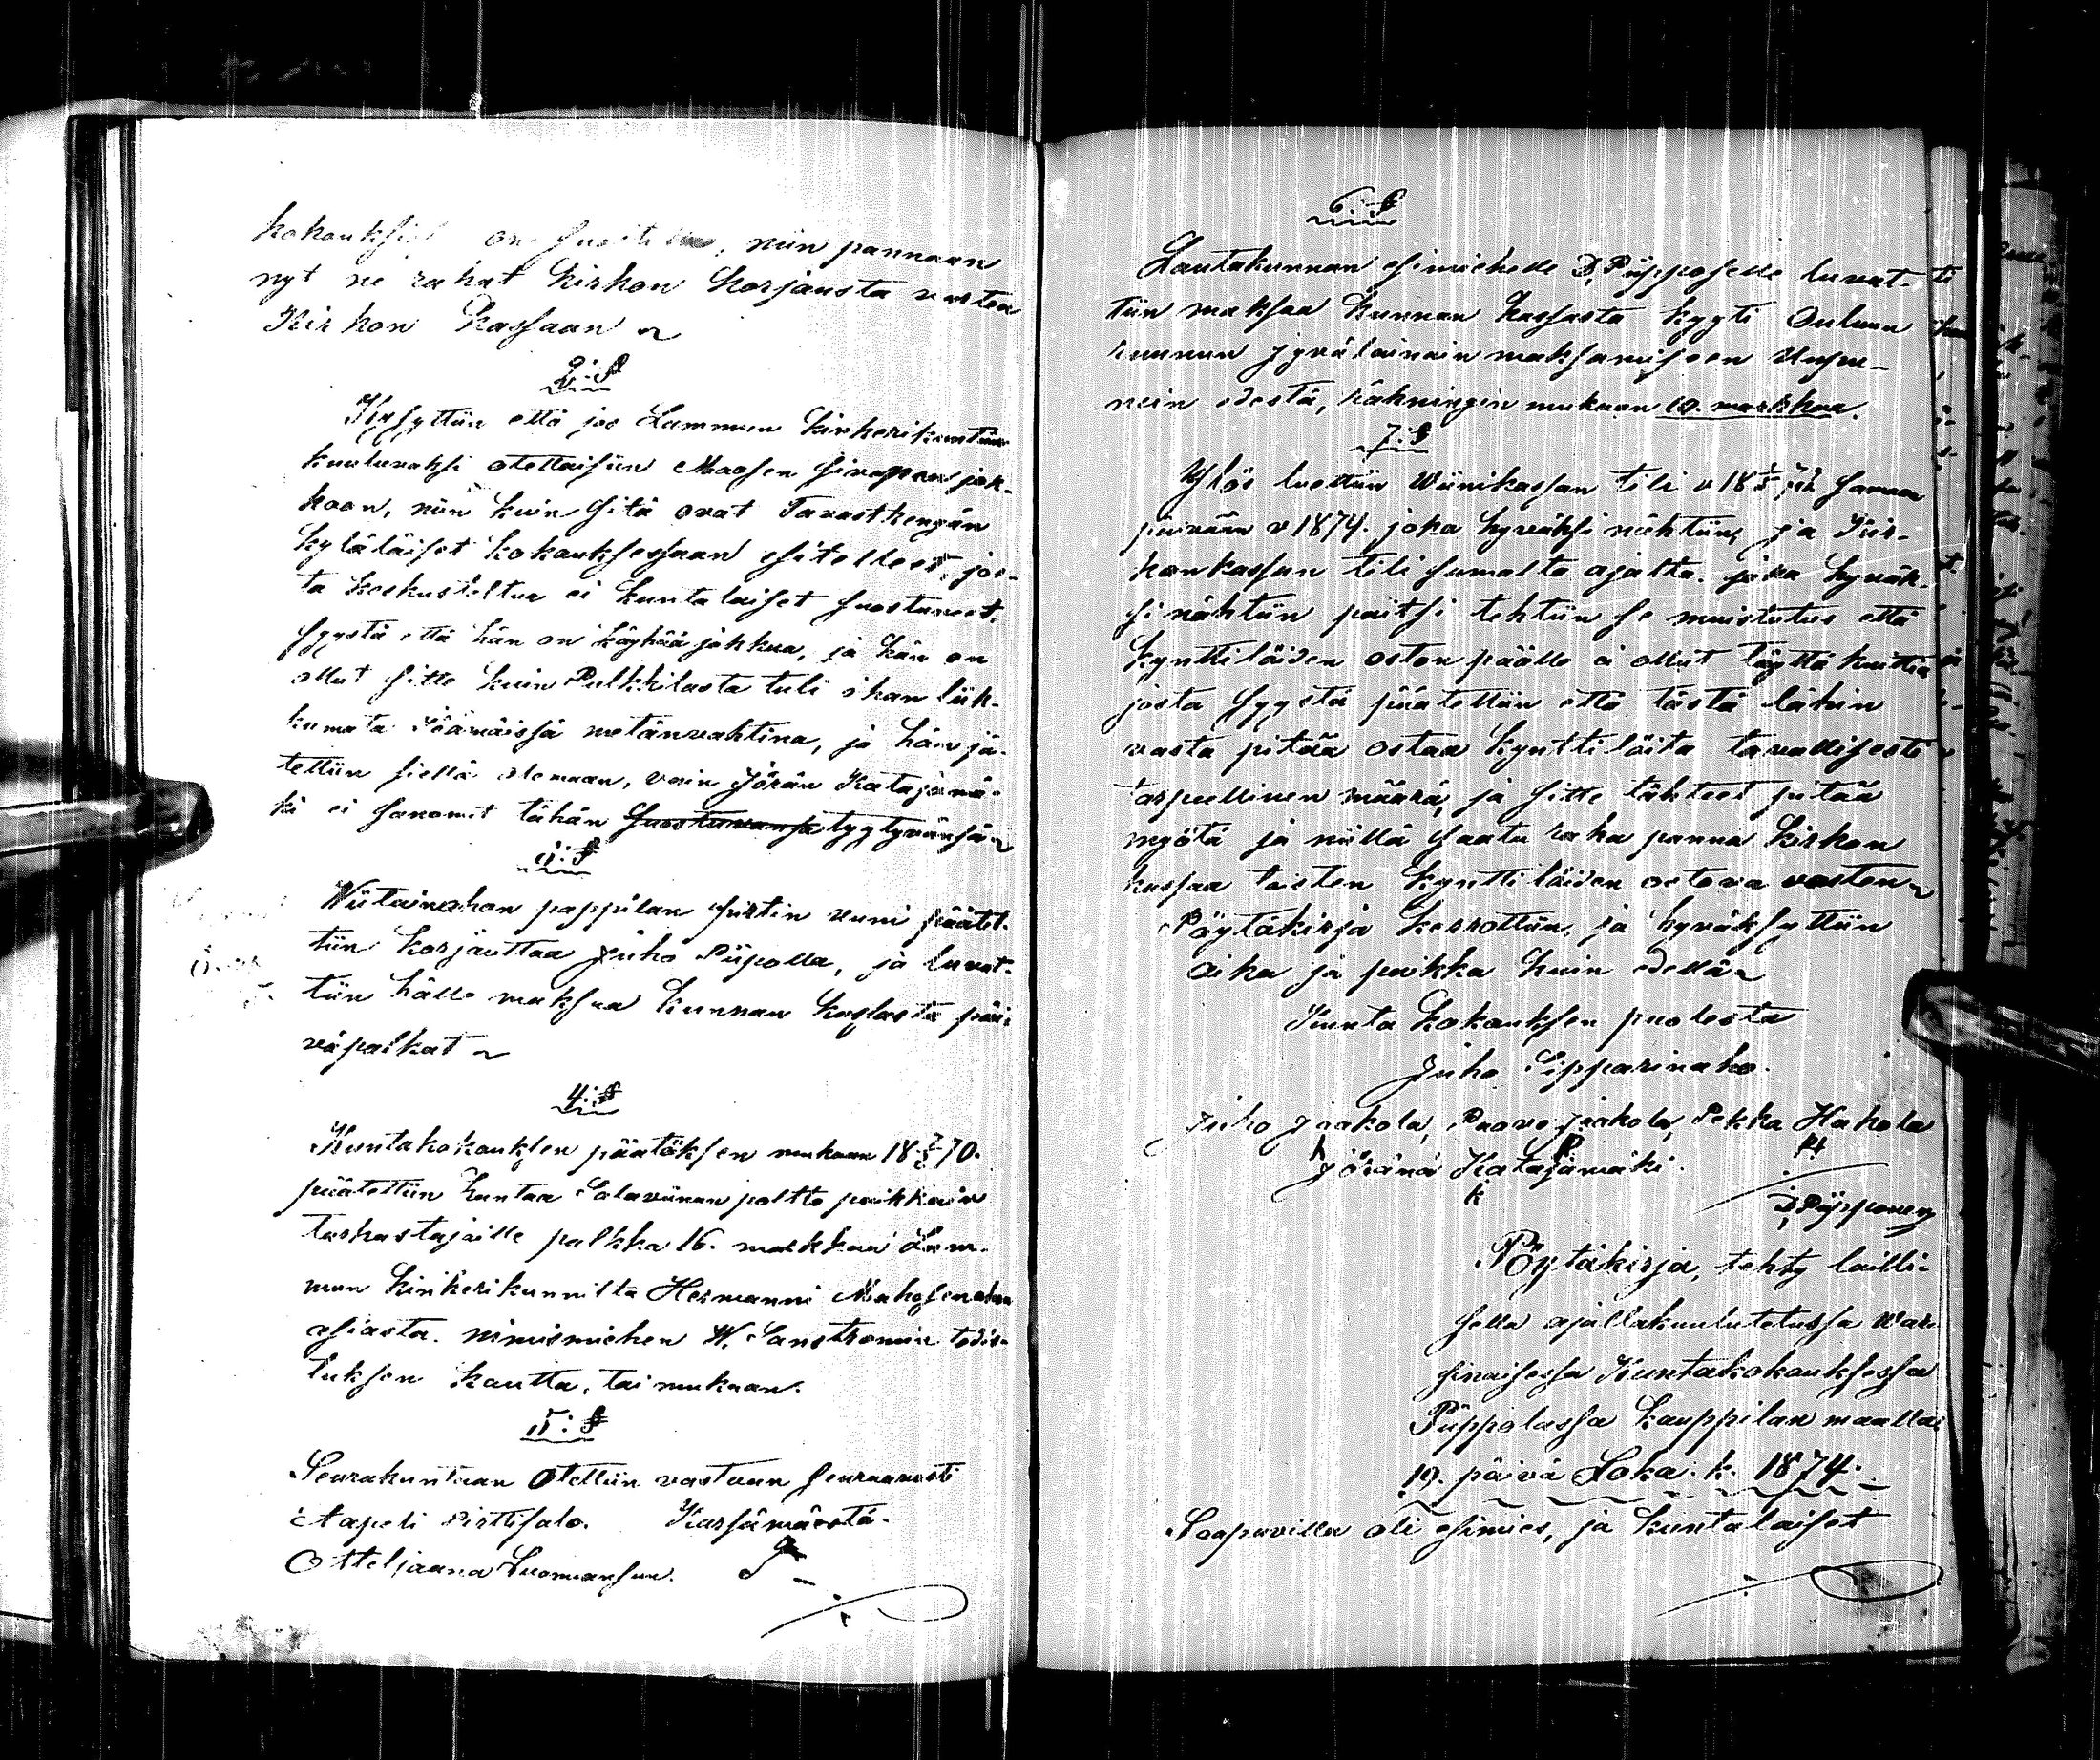 kokouksissa on suostuttu, niin pannaan
nyt ne rahat kirkon korjausta varten
Kirkon kassaan
2:§
Kysyttiin että jos Lammun kinkerikuntaan
kuuluvaksi otettaisiin Maosen
koon, niin kuin sitä ovat Tavastkengän
kyläläiset kokouksessaan esitelleet, jos-
ta keskusteltua ei kuntalaiset suostuneet,
syystä että hän on köyhää jokkua, ja hän on
ollut sitte kuin Pulkkilasta tuli ihan liik-
kumata Jäämäissä metänvahtina, ja hän jä-
tettiin siellä olemaan, vain Jöran Katajamä-
ki ei sanonut tähän suostuvansa tyytyvänsä
3:§
Niitainahon pappilan pirtin uuni päätet-
tiin korjauttaa Juho Piipolla, ja luvat-
tiin hälle maksaa kunnan kassasta päi-
väpalkat
4:§
Kuntakokouksen päätöksen mukaan 18 7/2 70.
päätettiin kantaa Salaviinan poltto paikkain
tarkastajaille palkka 16. markkaa Lam-
mun kinkerikunnilta Hermanni Mahosen
asiasta. nimismiehen W. Sanstromin todis-
tuksen kautta, tai mukaan.
5:§
Seurakuntaan Otettiin vastaan seuraavasti
Aapeli Pirttisalo. Kärsämäestä.
Otteljaana Luomansuu.
6:§
Lautakunnan esimiehelle D, Piipposelle luvat-
tiin maksaa kunnan kassasta kyyti Ouluun
ruunun jyvälainain maksamiseen
nein edestä, räkningin mukaan 10. markkaa.
7:§
Ylös luettiin Wiinikassan tili v 18 samaan
päivään v 1874. joka hyväksi nähtiin, ja Kir-
konkassan tili samalta ajalta. joka hyväk-
si nähtiin paitsi tehtiin se muistutus että
kynttilöiden oston päälle ei ollut täyttä kuittia
josta syystä päätettiin että tästä lähin
vasta pitää ostaa kynttilöitä tavallisesti
tarpeellinen määrä, ja sitte tähteet pitää
myötä ja niillä saatu raha panna kirkon
kassaa taisten kynttilöiden ostova vasten
Pöytäkirja kerrottiin, ja hyväksyttiin
aika ja paikka kuin edellä
Kunta kokouksen puolesta
Juho Lipparinaho.
Juho Jaakola, Paavo Jaakola, Pekka Hakola
Jöränä Katajamäki.
D, Piipponen
Pöytäkirja, tehty lailli-
sella ajallakuulutetussa War-
sinaisessa Kuntakokouksessa
Piippolassa Kauppilan maalla
19. päivä Loka. k. 1874.
Saapuvilla oli esimies, ja kuntalaiset